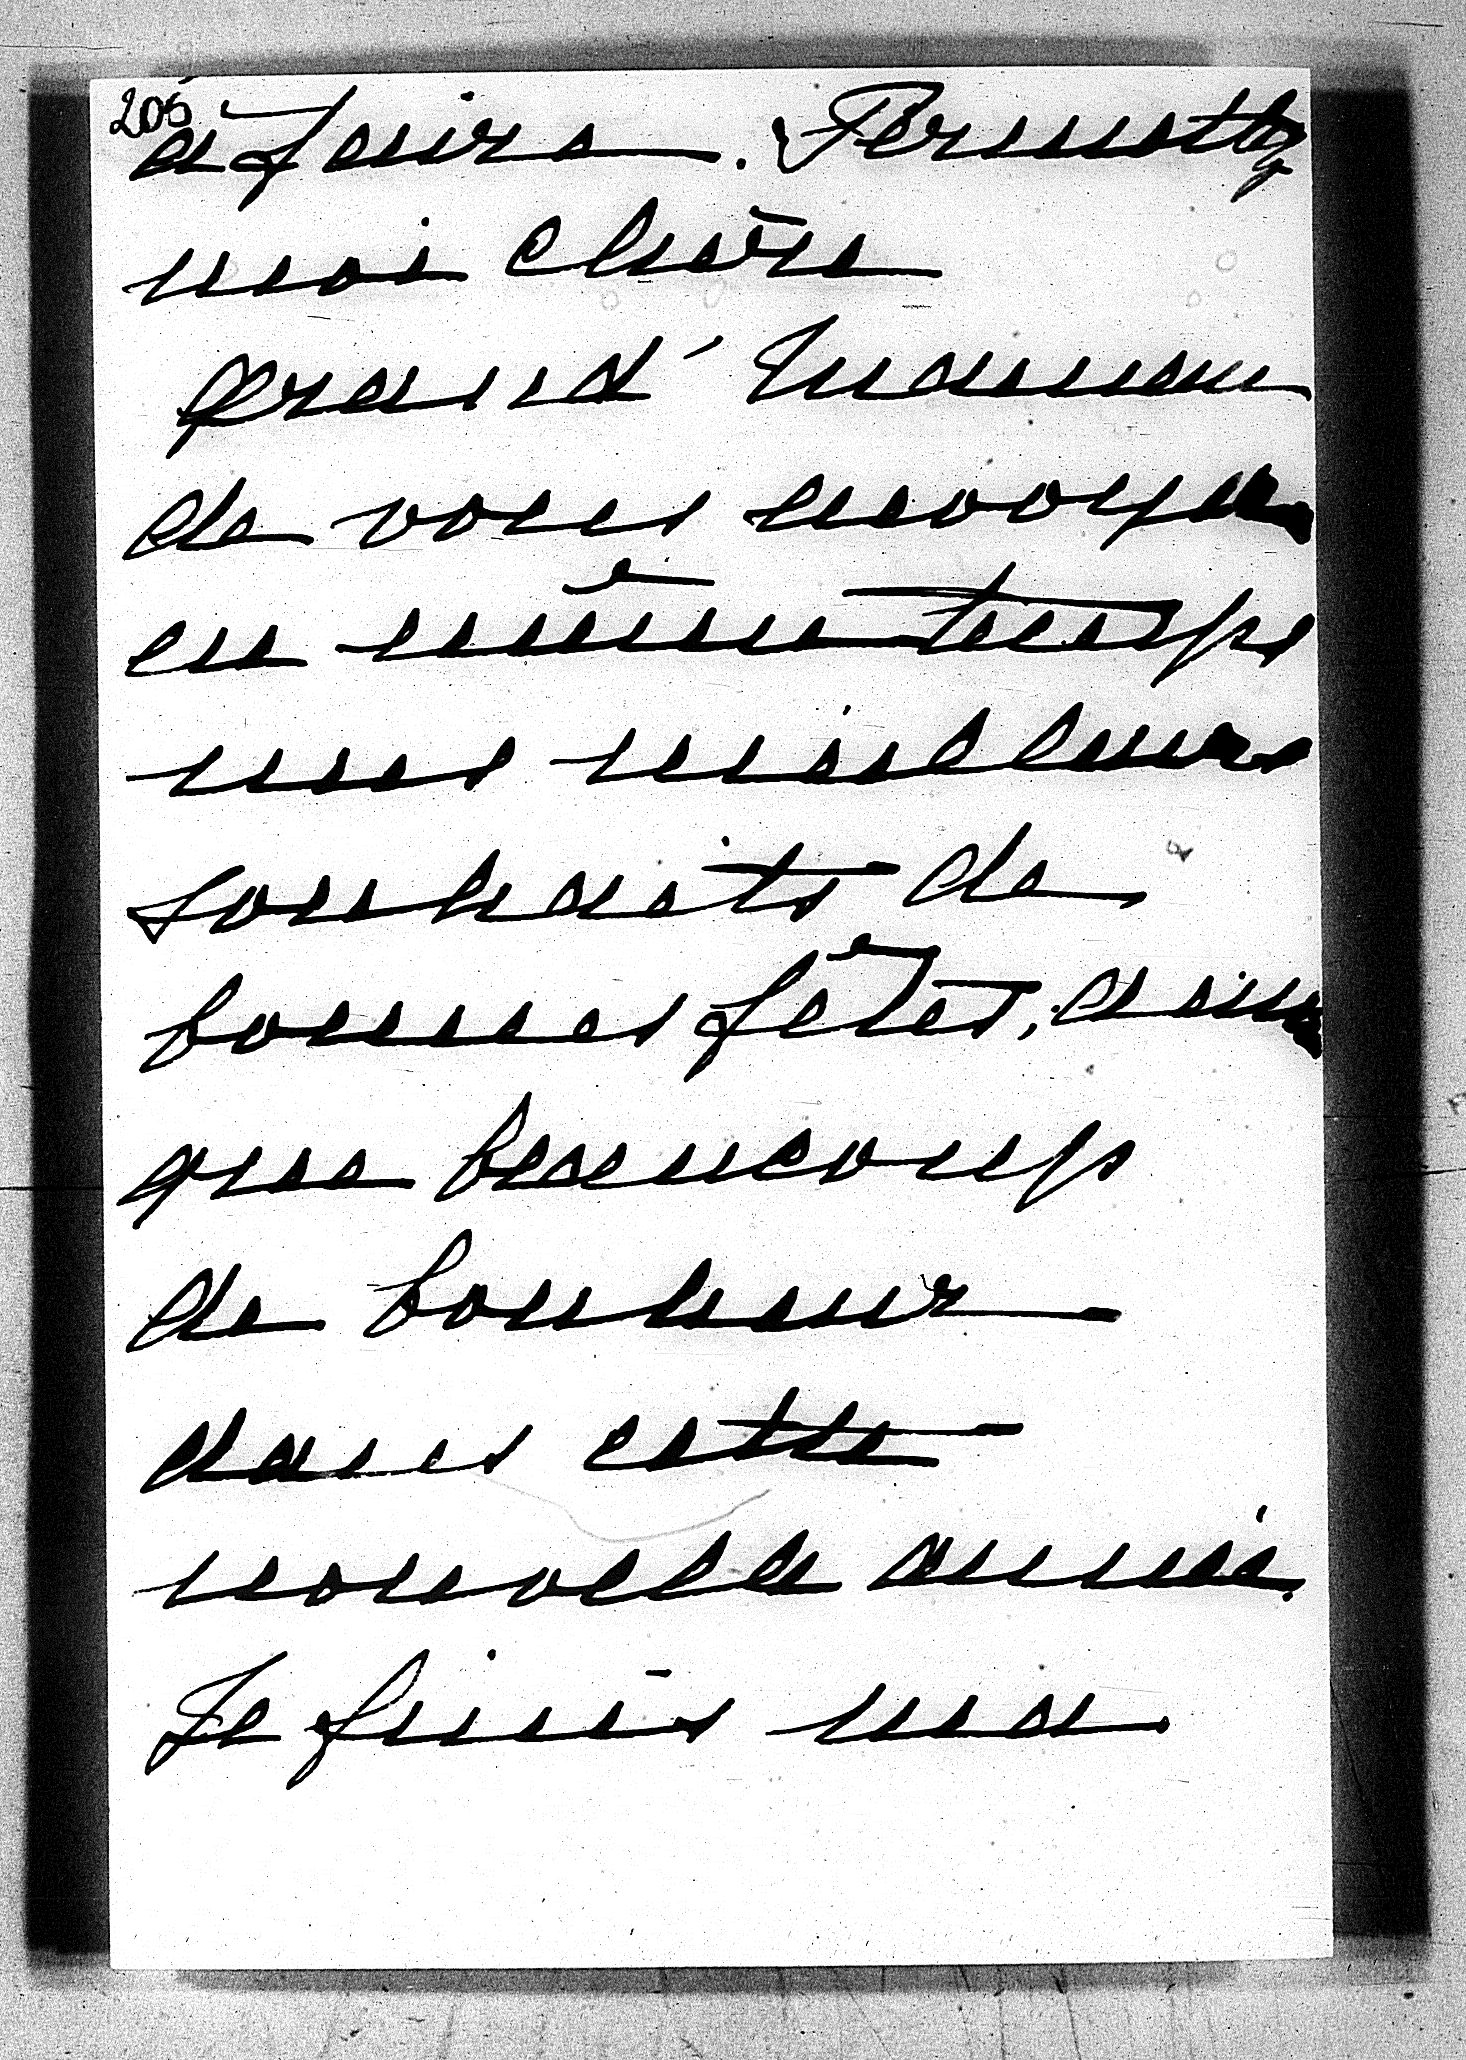 206
à faire. Permettez
moi chère
grand' Maman
de vous envoyer
en même temps
mes meilleurs
souhaits de
bonnes fêtes, ainsi
que beaucoup
de bonheur
dans cette
nouvelle année.
Je finis ma